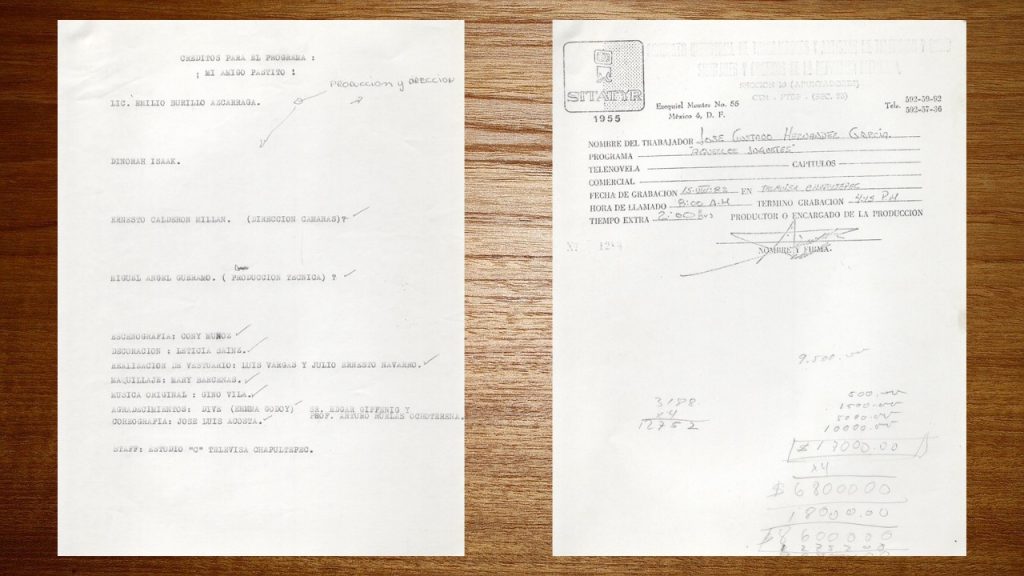 CREDITOS PARA EL PROGRAMA :
¡ MI AMIGO PASTITO !
PRODUCCION y DIRECCION
LIC. EMILIO BURILLO AZCARRAGA.
DINORAH ISAAK.
ERNESTO CALDERON MILLAN. (DIRECCION CAMARAS)?
MIGUEL ANGEL GUERAMO. ( PRODUCCION TECNICA) ?
ESCENOGRAFIA: CONY MUÑOZ
DECORACION : LETICIA SAINZ.
REALISACION DE VESTUARIO: LUIS VARGAS Y JULIO ERNESTO NAVARRO.
MAQUILLAJE: MARY BARCENAS.
MUSICA ORIGINAL : GINO VILA.
AGRADACIMIENTOS: DIVE (EMMMA GODOY) SR. EDGAR GIFFENIG Y
PROF. ARTURO OCHOTERENA.
COREOGRAFIA: JOSE LUIS ACOSTA.
STAFF: ESTUDIO "C" TELEVISA CHAPULTEPEC.
SITATYR
1955
Ezequiel Montes No. 56
México 4, D. F.
Tels. 592-39-92
592-57-36
NOMBRE DEL TRABAJADOR JOSE GUSTAVO HERNANDEZ GARCIA
PROGRAMA "AQUELLOS JUGUETES"
TELENOVELA CAPITULOS
COMERCIAL
FECHA DE GRABACION EN TELEVISA CHAPULTEPEC
HORA DE LLAMADO 8:00 A.M TERMINO GRABACION 4:45 P.M
TIEMPO EXTRA 2:00 hrs PRODUCTOR O ENCARGADO DE LA PRODUCCION
NOMBRE Y FIRMA.
9.500.00
3188
x4
12752
500.00
1500.00
5000.00
10000.00
17000.00
x4
$ 6800000
18000.00
$ 8600000